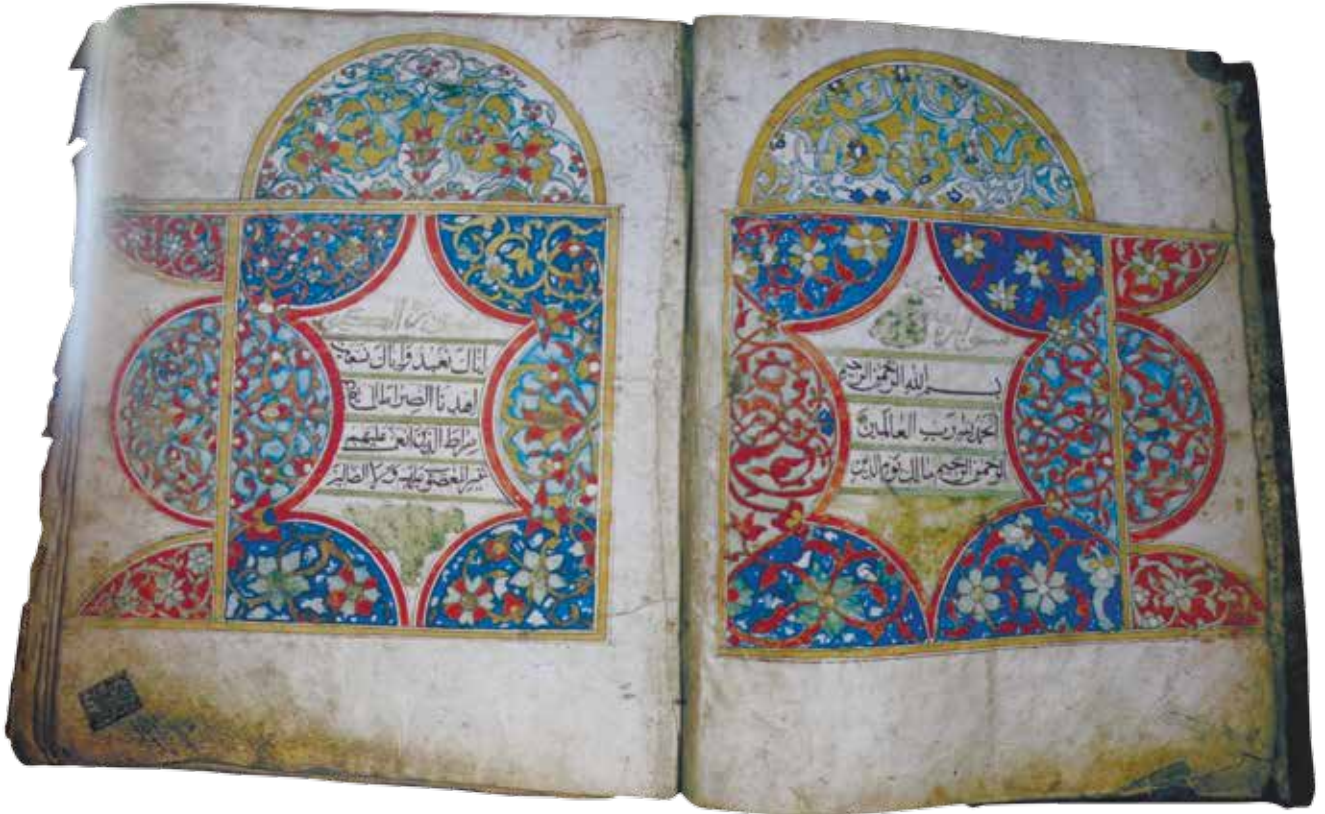 بسم الله الرحمن الرحيم
الحمد لله رب العالمين
الرحمن الرحيم مالك يوم الدين
اياك نعبد واياك نستعين
اهدنا الصراط
صراط الذين انعمت عليهم
غير المغضوب عليهم ولا الضالين